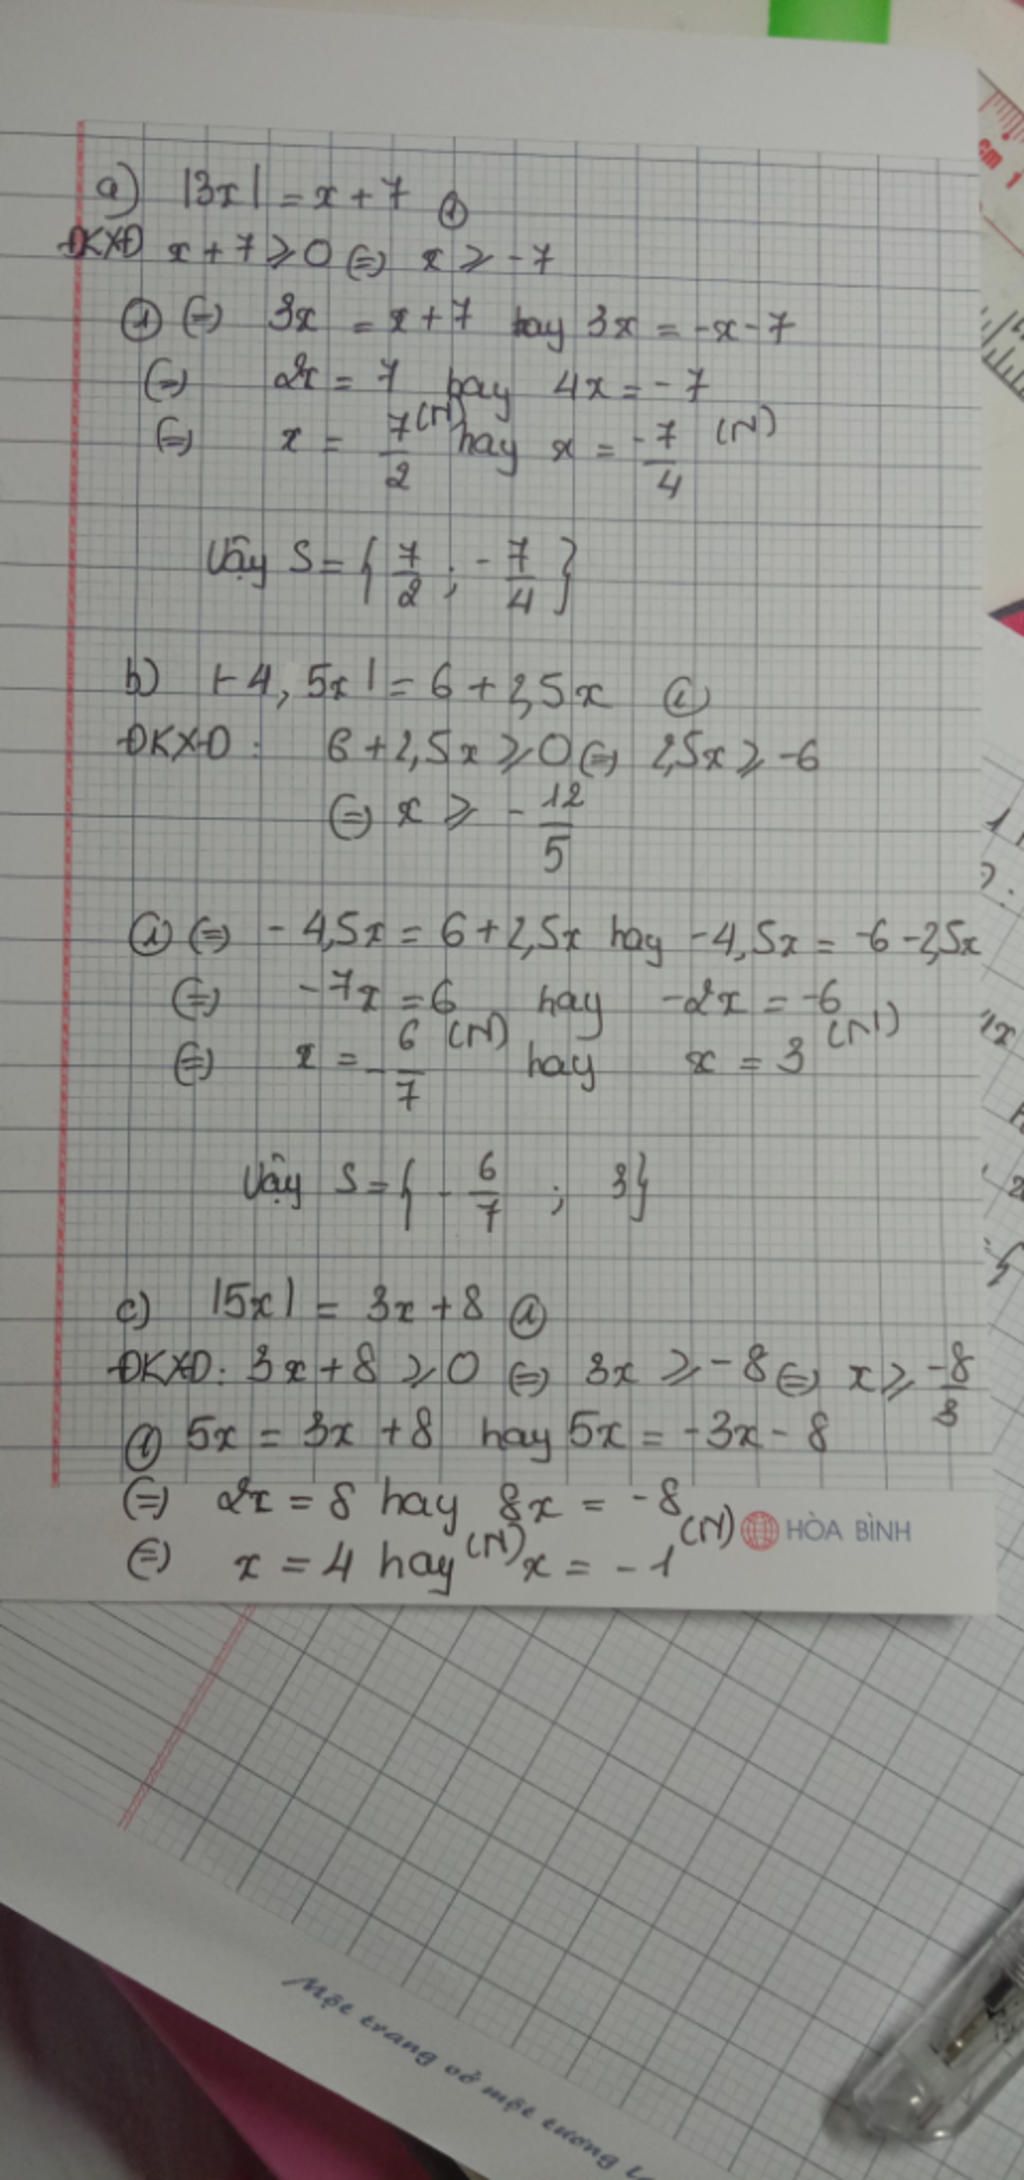 a) |3x| = x + 7 ①
ĐKXĐ x + 7 ⩾ 0 ⇔ x ⩾ -7
① ⇔ 3x = x + 7 hay 3x = -x - 7
⇔ 2x = 7 hay 4x = -7
⇔ x = 7/2 (N) hay x = -7/4 (N)
Vậy S = { 7/2 ; -7/4 }
b) |-4,5x| = 6 + 2,5x ①
ĐKXĐ : 6 + 2,5x ⩾ 0 ⇔ 2,5x ⩾ -6
⇔ x ⩾ -12/5
① ⇔ -4,5x = 6 + 2,5x hay -4,5x = -6 - 2,5x
⇔ -7x = 6 hay -2x = -6
⇔ x = -6/7 (N) hay x = 3 (N)
Vậy S = { -6/7 ; 3 }
c) |5x| = 3x + 8 ①
ĐKXĐ : 3x + 8 ⩾ 0 ⇔ 3x ⩾ -8 ⇔ x ⩾ -8/3
① 5x = 3x + 8 hay 5x = -3x - 8
⇔ 2x = 8 hay 8x = -8
⇔ x = 4 hay (N) x = -1 (N)
HÒA BÌNH
Một trang vở một tương
cm 1